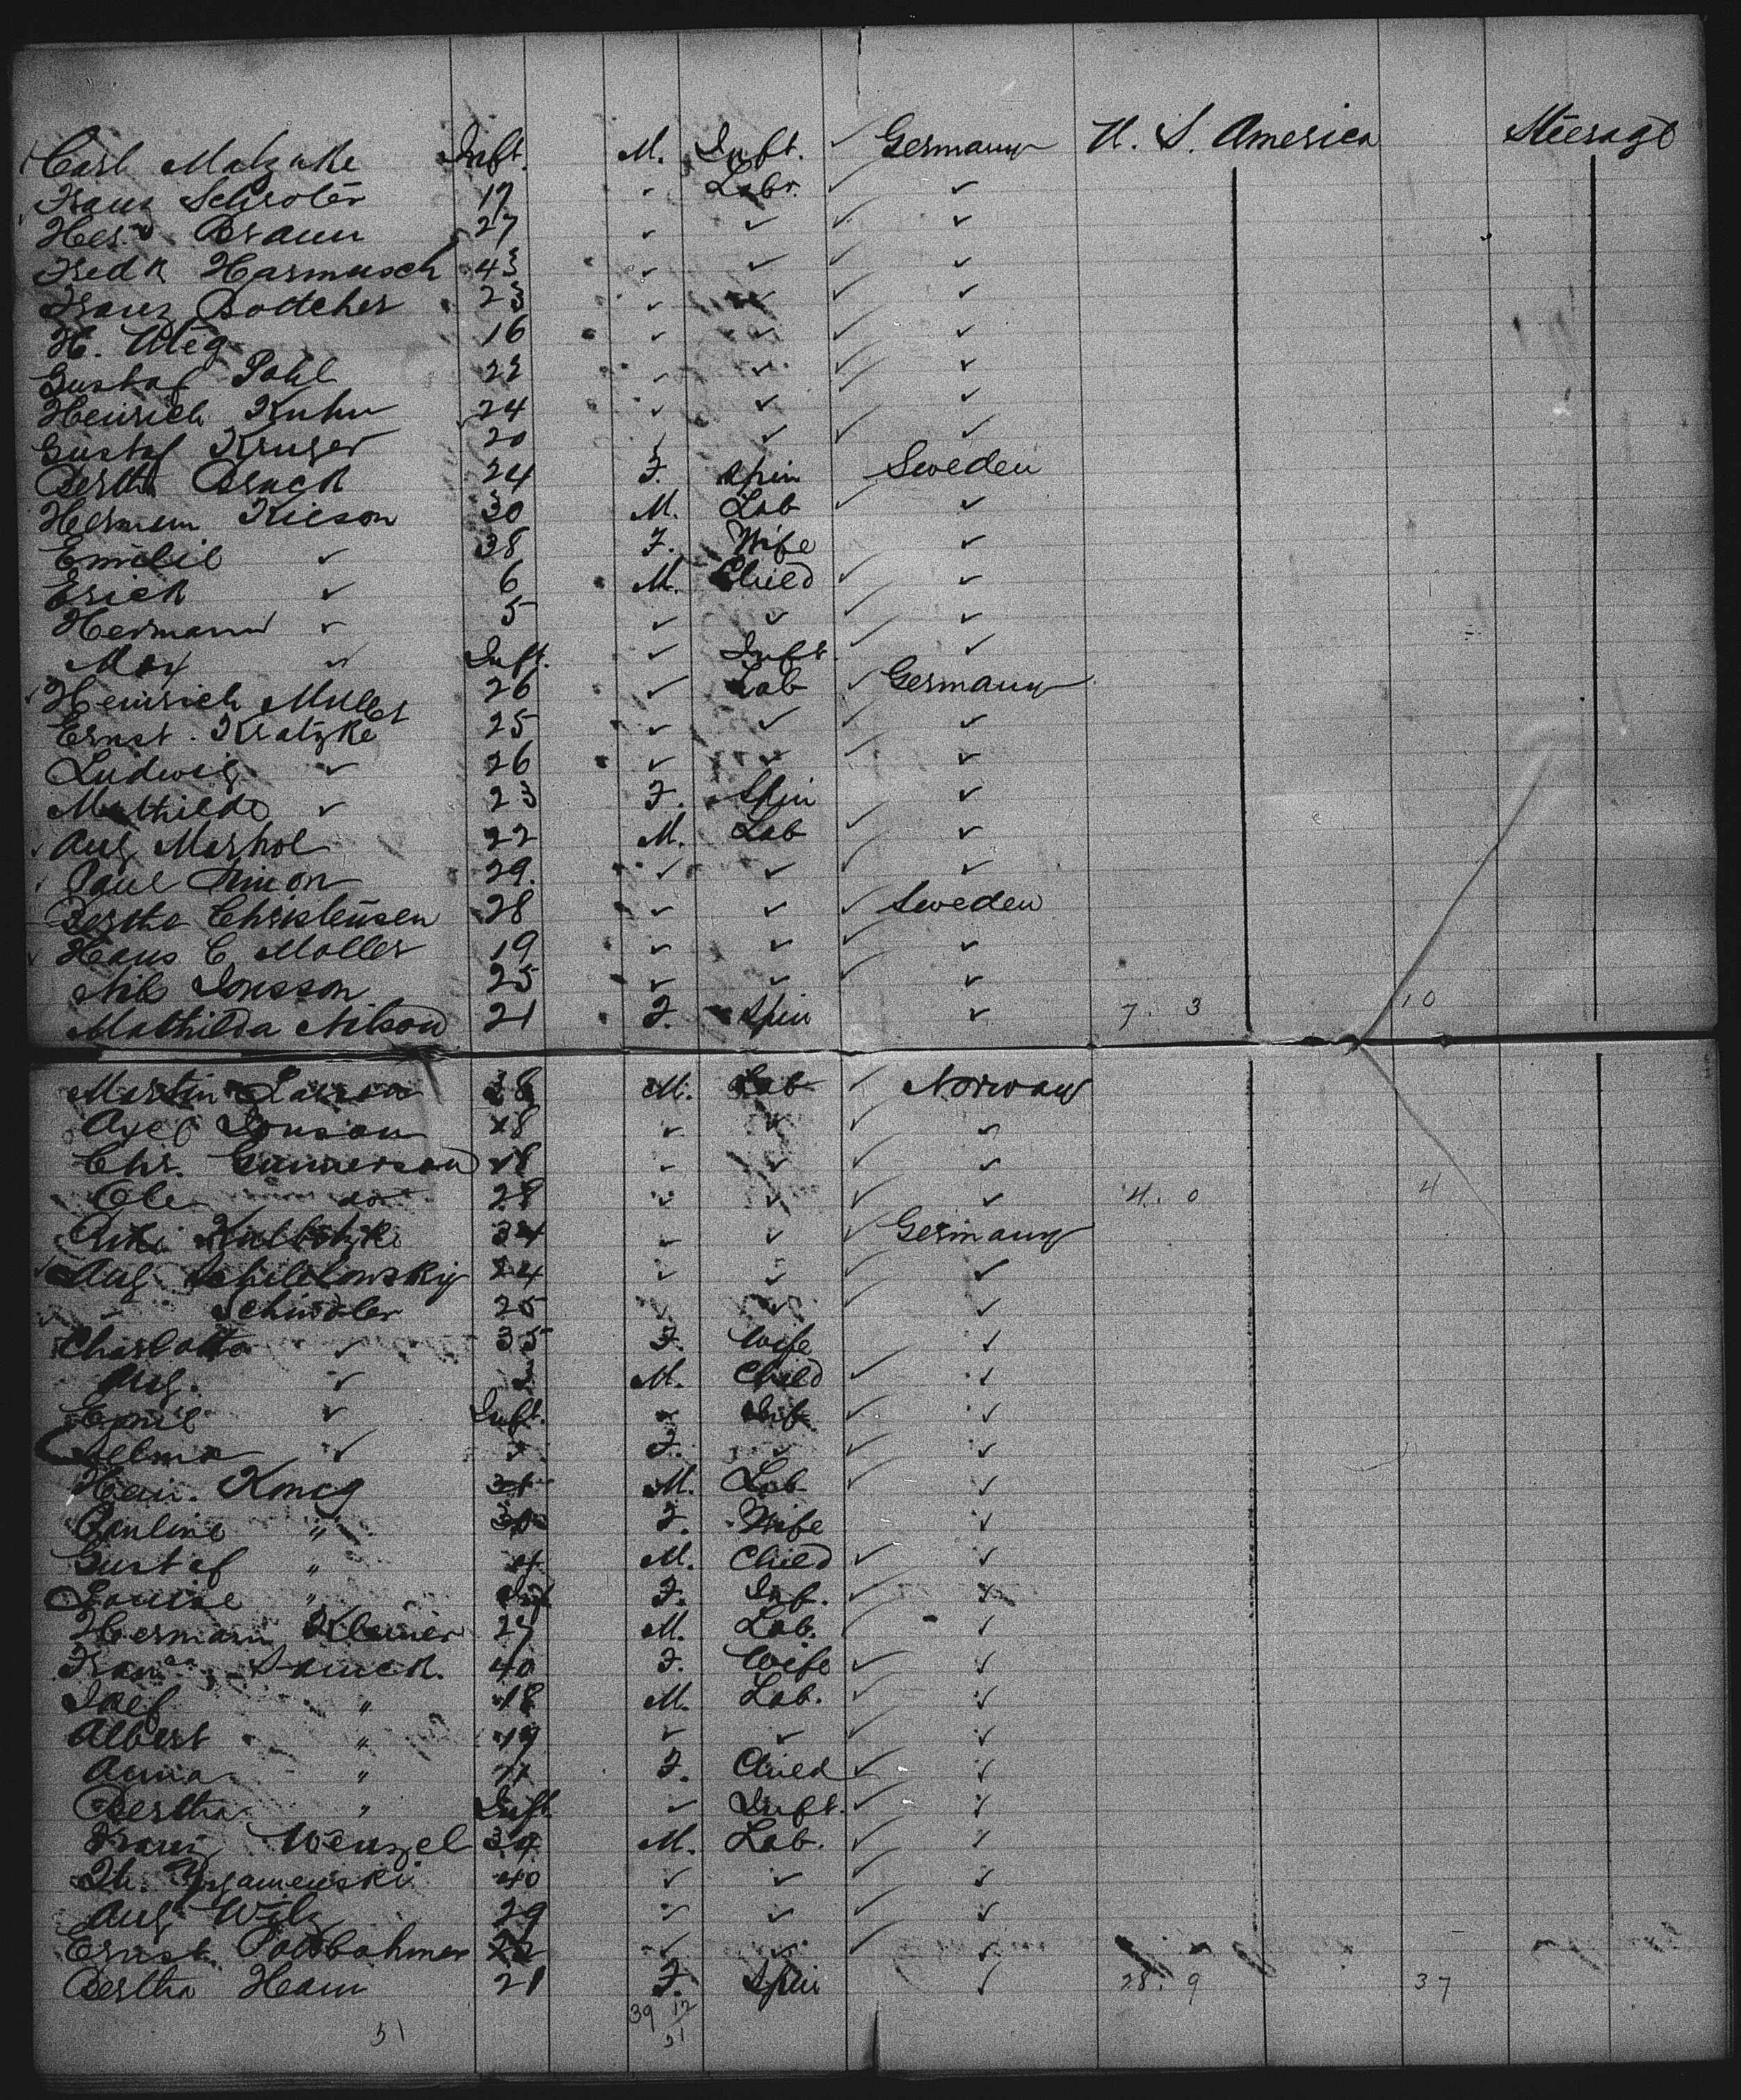 Carl Matzake Inft. M. Inft. ✓ Germany U. S. America Steerage
Franz Schroter 17 ✓ Labr. ✓ ✓
Herd. Braun 27 ✓ ✓ ✓ ✓
Fredk Harmusch 43 ✓ ✓ ✓ ✓
Franz Bottcher 23 ✓ ✓ ✓ ✓
H. 16 ✓ ✓ ✓ ✓
Gustaf Pohl 22 ✓ ✓ ✓ ✓
Heinrich Kuhn 24 ✓ ✓ ✓ ✓
Gustaf Kruger 20 ✓ ✓ ✓ ✓
Bertha Brack 24 F. Spin Sweden
Herman Kieson 30 M. Lab ✓ ✓
Emilie ✓ 38 F. Wife ✓ ✓
Erick ✓ 6 M. Child ✓ ✓
Hermann ✓ 5 ✓ ✓ ✓ ✓
Max ✓ Inft. ✓ Inft ✓ ✓
Heinrich Muller 26 ✓ Lab ✓ Germany
Ernst Kratzke 25 ✓ ✓ ✓ ✓
Ludwig ✓ 26 ✓ ✓ ✓ ✓
Mathilde ✓ 23 F. Spin ✓
Aug Marhol 22 M. Lab ✓ ✓
Paul Simon 29. ✓ ✓ ✓ ✓
Berthe Christensen 28 ✓ ✓ ✓ Sweden
Hans C Moller 19 ✓ ✓ ✓ ✓
Nils Jonsson 25 ✓ ✓ ✓ ✓
Mathilda Nilson 21 F. Spin ✓ 7. 3 10
Martin Larson 38 M. Lab ✓ Norway
Axel Jonson 18 ✓ ✓ ✓ ✓
Chr. Gunnerson 18 ✓ ✓ ✓ ✓
Ole do 28 ✓ ✓ ✓ ✓ 4. 0 4
34 ✓ ✓ ✓ Germany
Aug 24 ✓ ✓ ✓ ✓
" Schindler 25 ✓ ✓ ✓ ✓
Charlotta ✓ 35 F. Wife ✓
Aug. ✓ M. Child ✓ ✓
Emil ✓ Inft. ✓ Inf ✓ ✓
Selma ✓ ✓ F. ✓ ✓ ✓
Hein. Konig 31 M. Lab ✓ ✓
Pauline " 30 F. Wife ✓
Gustaf " 4 M. Child ✓ ✓
Louise " Inf F. Inf. ✓ ✓
Hermann Kleiner 27 M. Lab. ✓ ✓
40 F. Wife ✓ ✓
Josef " 18 M. Lab. ✓ ✓
Albert " 19 ✓ ✓ ✓ ✓
Anna " 11 F. Child ✓ ✓
Bertha " Inft. ✓ Inft. ✓ ✓
Franz Wenzel 34 M. Lab. ✓ ✓
40 ✓ ✓ ✓ ✓
Aug Wilz 29 ✓ ✓ ✓ ✓
Ernst 22 ✓ ✓ ✓ ✓
Bertha Ham 21 F. Spin ✓ 28. 9 37
51 39 12
51